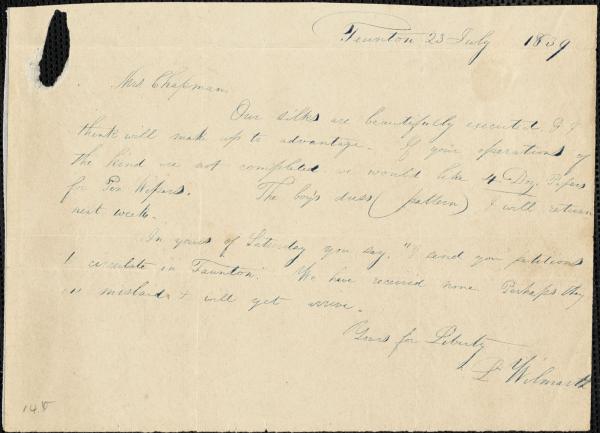 Taunton 23 July 1839
Mrs Chapman,
Our silks are beautifully executed, & I
think will make up to advantage. If your operations of
the kind are not completed we would like 4 Doz. Papers
for Pen Wipers. The boy's dress (pattern) I will return
next week.
In yours of Saturday you say, "I send you petitions
to circulate in Taunton". We have received none Perhaps they
are mislaid & will yet arrive.
Yours for Liberty
L Wilmarth